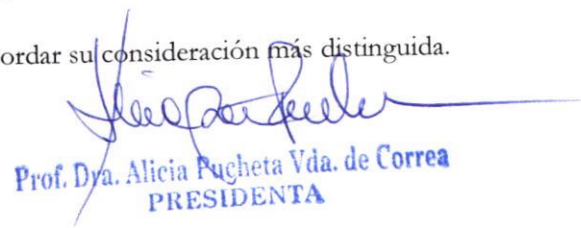 ordar su consideración más distinguida.
Prof. Dra. Alicia Pucheta Vda. de Correa
PRESIDENTA